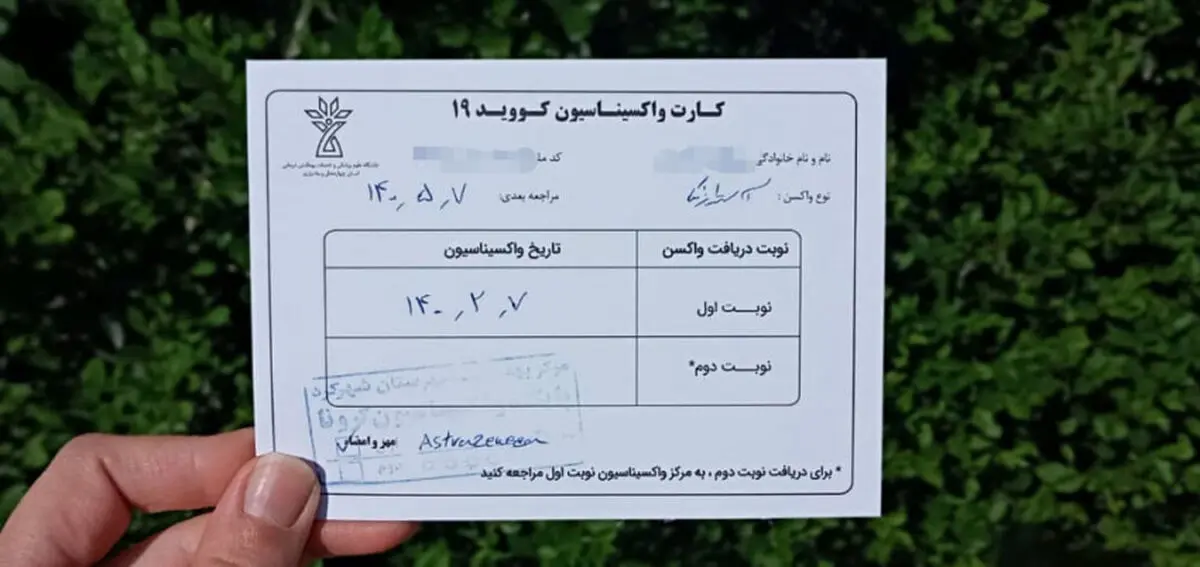 کارت واکسیناسیون کووید ۱۹
دانشگاه علوم پزشکی و خدمات بهداشتی درمانی
استان چهارمحال و بختیاری
نام و نام خانوادگی
کد مل
نوع واکسن : آسترازنکا
مراجعه بعدی: ۱۴۰۰٫۵٫۷
نوبت دریافت واکسن تاریخ واکسیناسیون
نوبت اول ۱۴۰۰٫۲٫۷
نوبت دوم*
ستان شهرکرد
کرونا
مهر و امضاء AstraZeneca
* برای دریافت نوبت دوم ، به مرکز واکسیناسیون نوبت اول مراجعه کنید